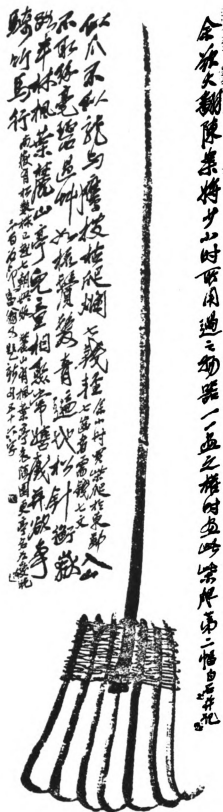 余欲大翻陳案將少小時所用過之物器一一畫之權時畫此柴爬第二幅白石并記
似爪不似龍與鷹搜枯爬爛七錢輕
余小時買柴爬於東鄰
七齒者需錢七文
入山
不取絲毫碧過草如梳鬢髮青遍地松針衡嶽
路半林楓葉麓山亭兒童相聚常嬉戲并欲爭
騎竹馬行
麓山有楓葉亭袁隨園更亭名